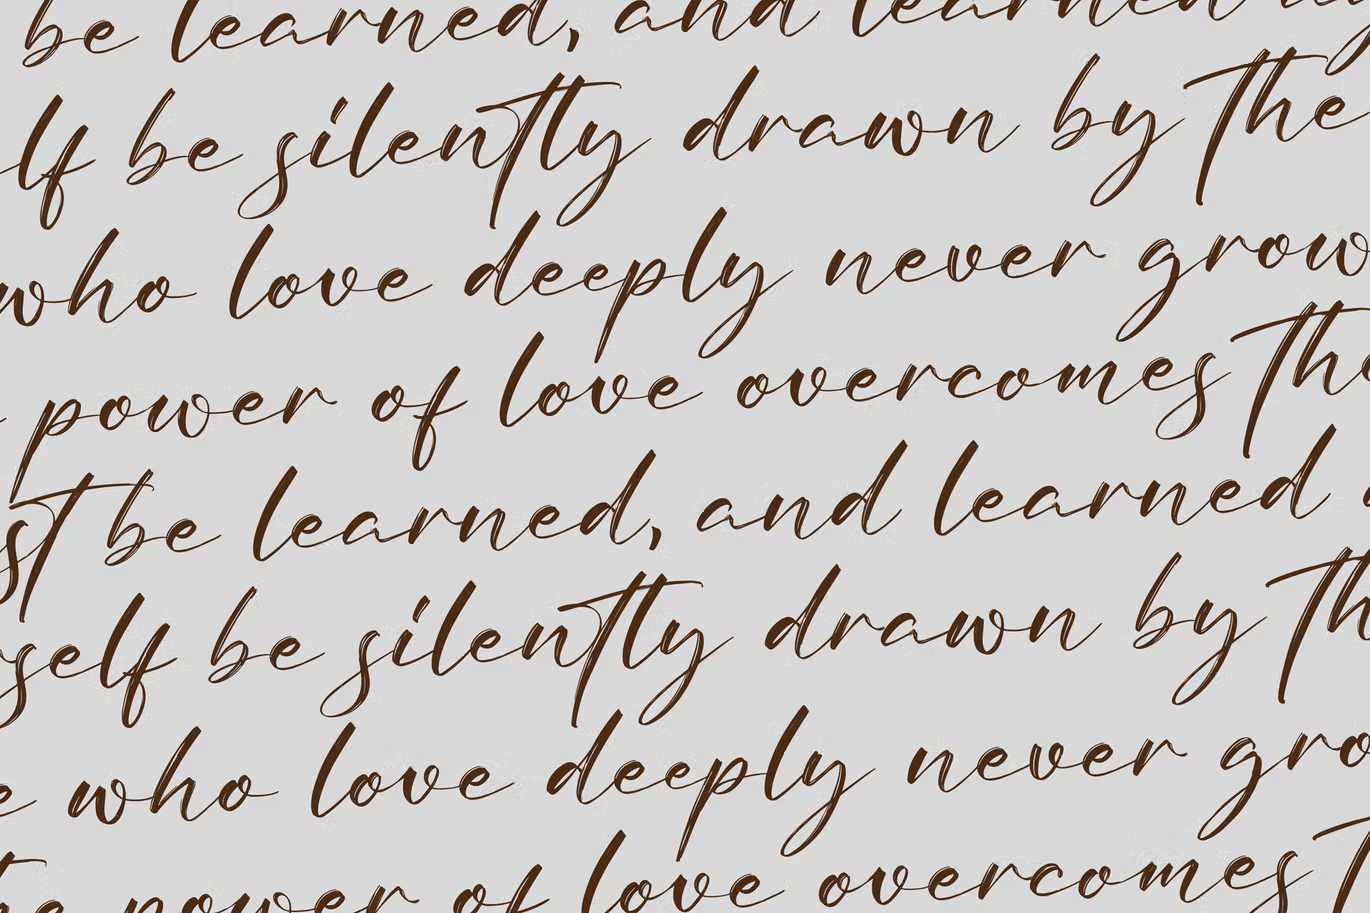 be learned, and learned
lf be silently drawn by the
who love deeply never grow
power of love overcomes the
st be learned, and learned
self be silently drawn by th
who love deeply never gro
power of love overcomes